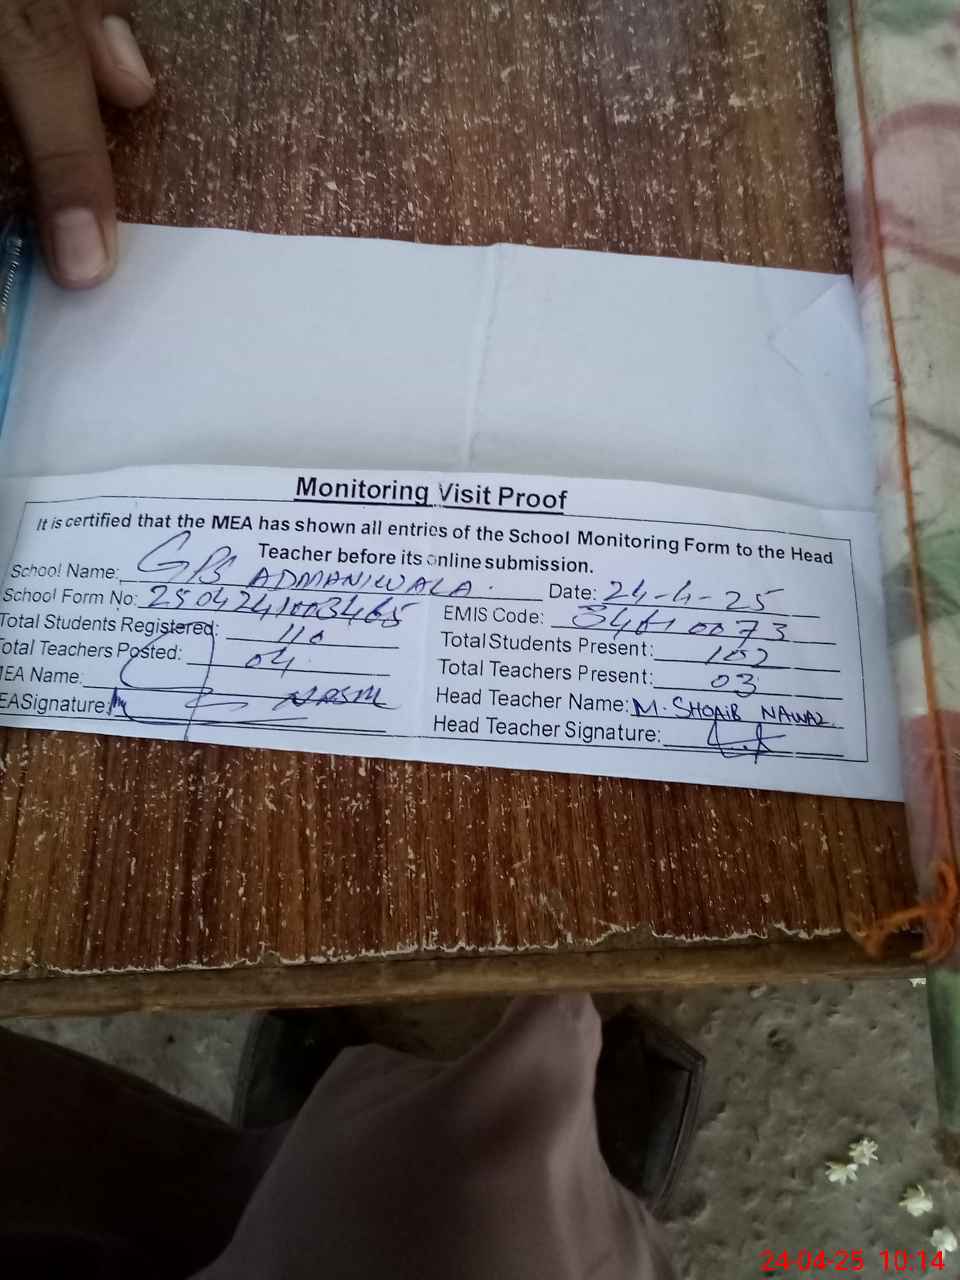 Monitoring Visit Proof
It is certified that the MEA has shown all entries of the School Monitoring Form to the Head
Teacher before its online submission.
School Name: GPS ADMANIWALA. Date: 24-4-25
School Form No: 2504241003465 EMIS Code: 34610073
Total Students Registered: 110 Total Students Present: 102
Total Teachers Posted: 04 Total Teachers Present: 03
MEA Name: Head Teacher Name: M. SHOAIB NAWAZ
EA Signature: Head Teacher Signature:
24-04-25 10:14